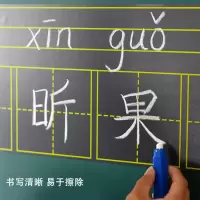 xīn guǒ
昕果
书写清晰 易于擦除